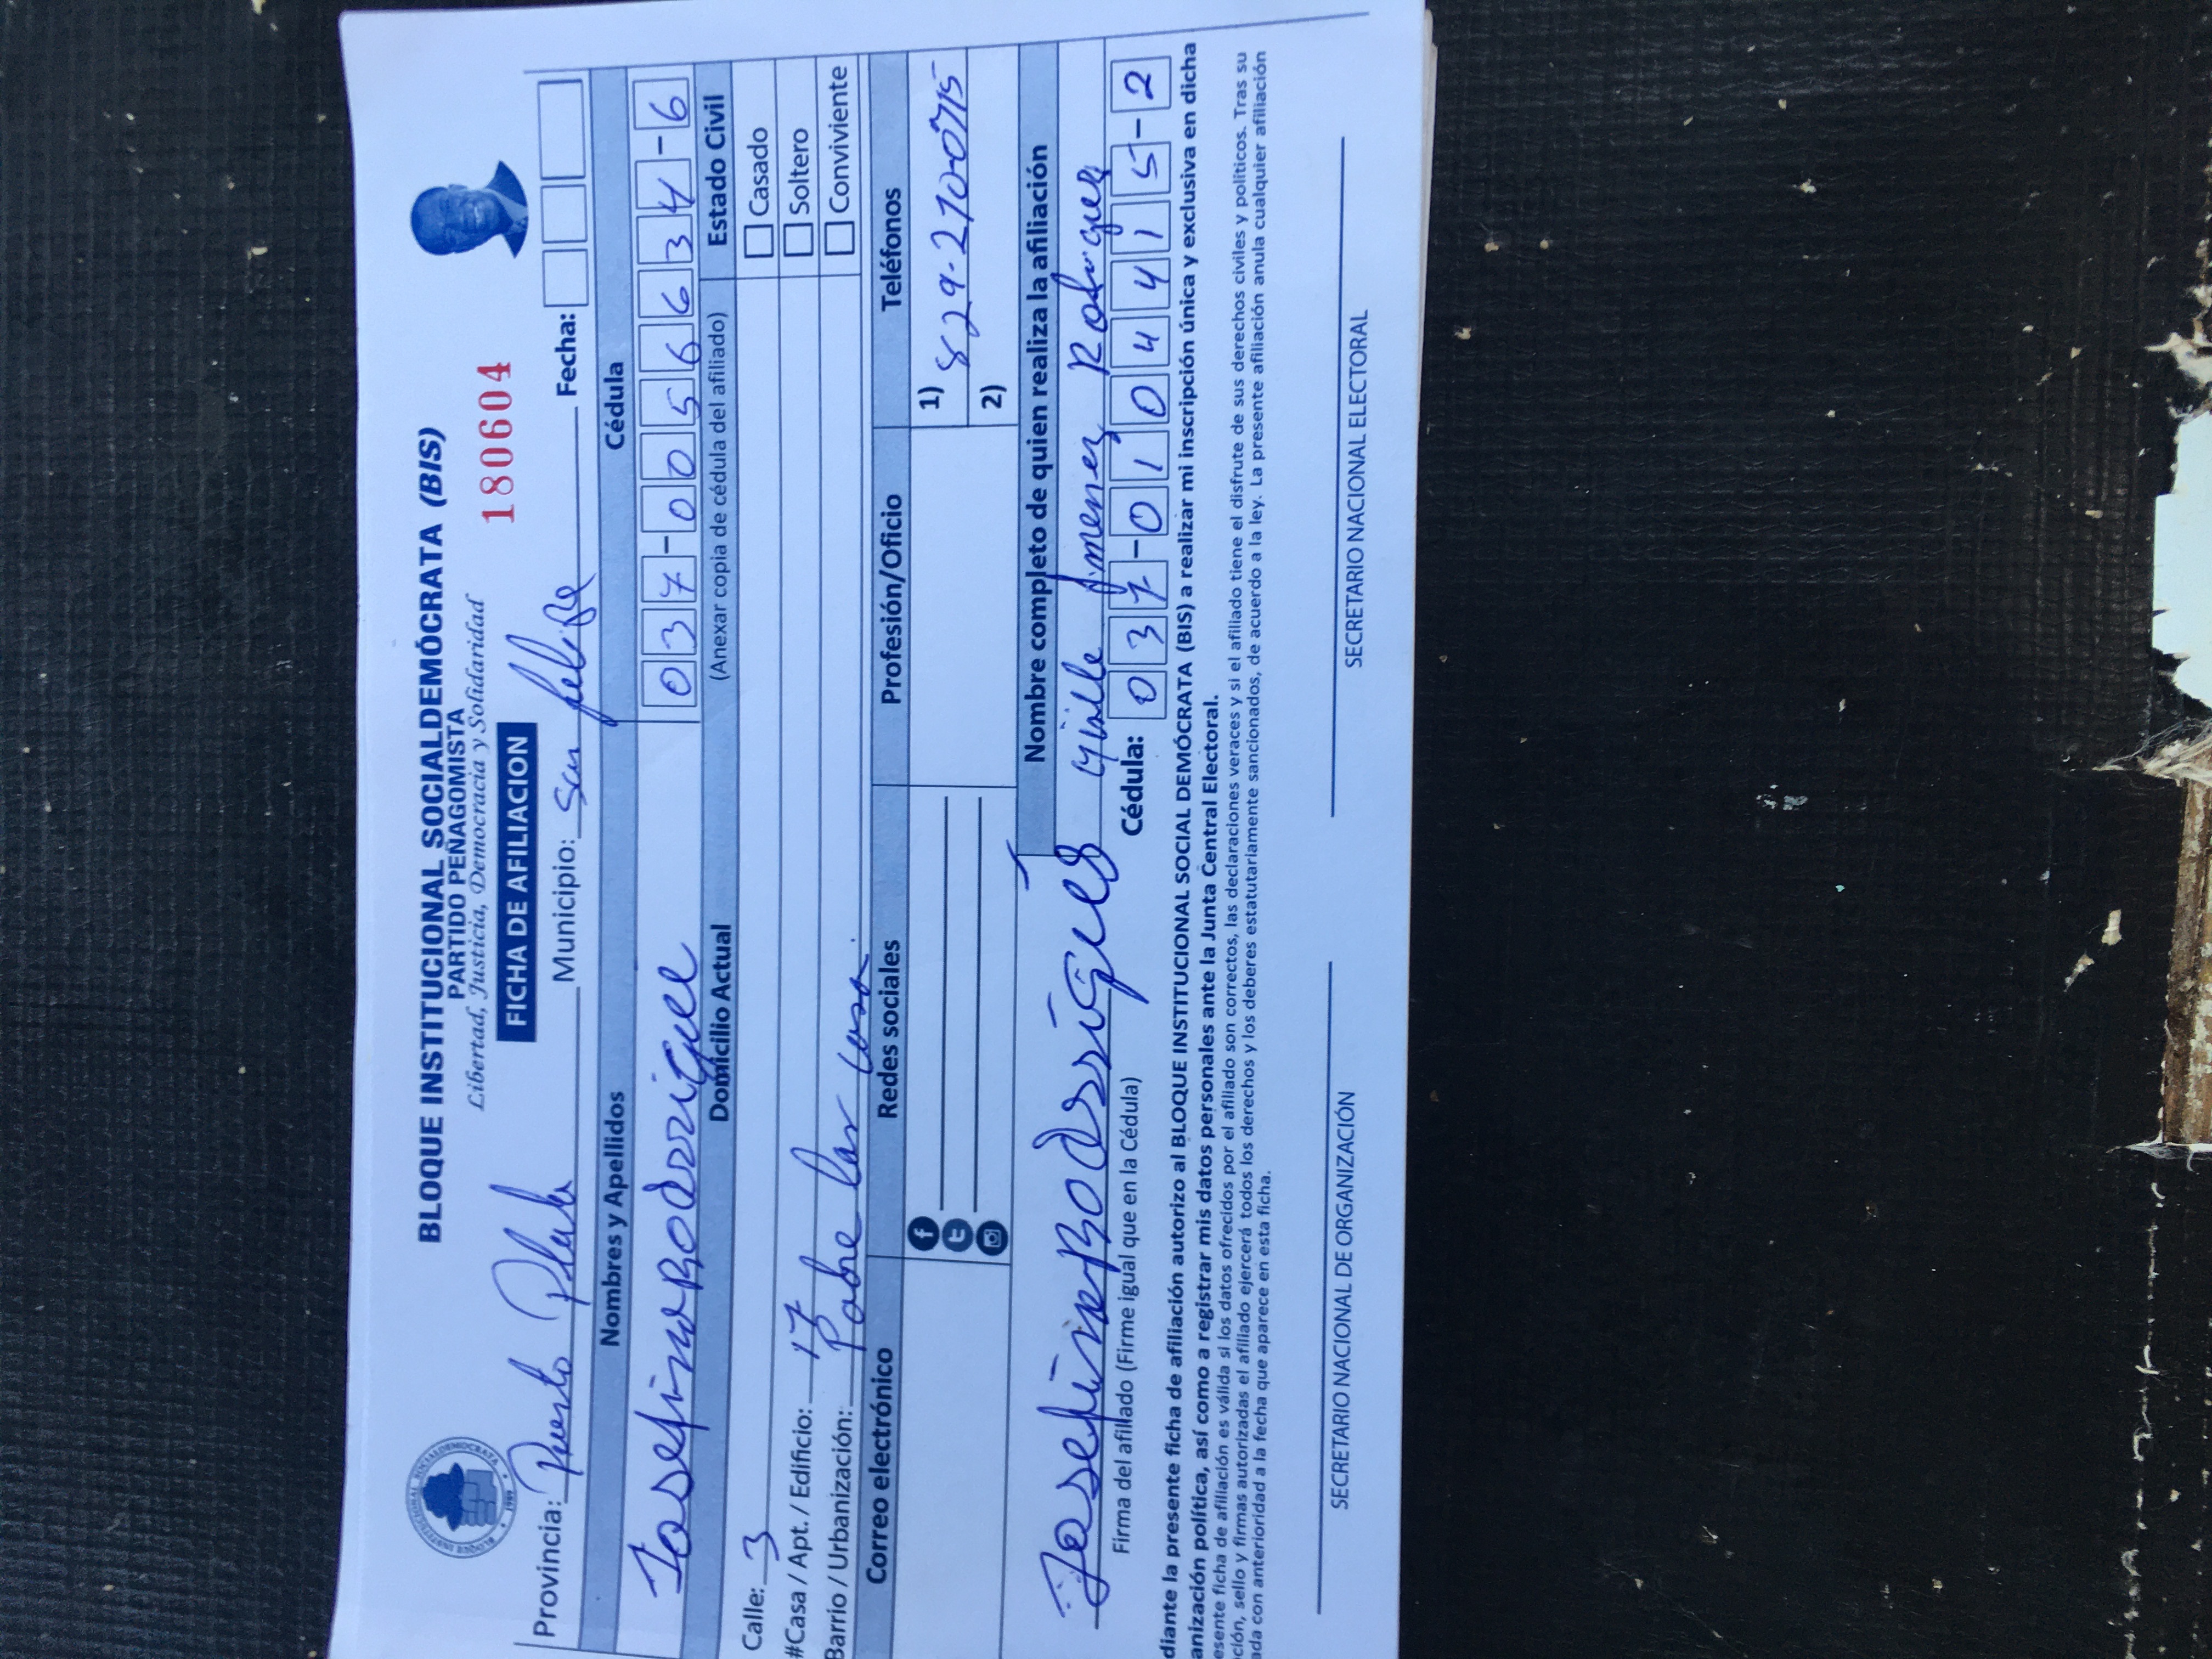 BLOQUE INSTITUCIONAL SOCIALDEMÓCRATA (BIS)
PARTIDO PEÑAGOMISTA
Libertad, Justicia, Democracia y Solidaridad
FICHA DE AFILIACION
180604
BLOQUE INSTITUCIONAL SOCIALDEMOCRATA
1989
Provincia: Puerto Plata Municipio: San felipe Fecha:
Nombres y Apellidos Cédula
Josefina Rodrriguee 037-0056634-6
Domicilio Actual (Anexar copia de cédula del afiliado) Estado Civil
Calle: 3 Casado
#Casa / Apt. / Edificio: 17 Soltero
Barrio / Urbanización: Padre las casa. Conviviente
Correo electrónico Redes sociales Profesión/Oficio Teléfonos
1) 829-210-0715
2)
Nombre completo de quien realiza la afiliación
Josefina Rodrrígues Jimenez Rodriguez
Firma del afiliado (Firme igual que en la Cédula) Cédula: 037-0104415-2
diante la presente ficha de afiliación autorizo al BLOQUE INSTITUCIONAL SOCIAL DEMÓCRATA (BIS) a realizar mi inscripción única y exclusiva en dicha
anización política, así como a registrar mis datos personales ante la Junta Central Electoral.
esente ficha de afiliación es válida si los datos ofrecidos por el afiliado son correctos, las declaraciones veraces y si el afiliado tiene el disfrute de sus derechos civiles y políticos. Tras su
ción, sello y firmas autorizadas el afiliado ejercerá todos los derechos y los deberes estatutariamente sancionados, de acuerdo a la ley. La presente afiliación anula cualquier afiliación
ada con anterioridad a la fecha que aparece en esta ficha.
SECRETARIO NACIONAL DE ORGANIZACIÓN SECRETARIO NACIONAL ELECTORAL